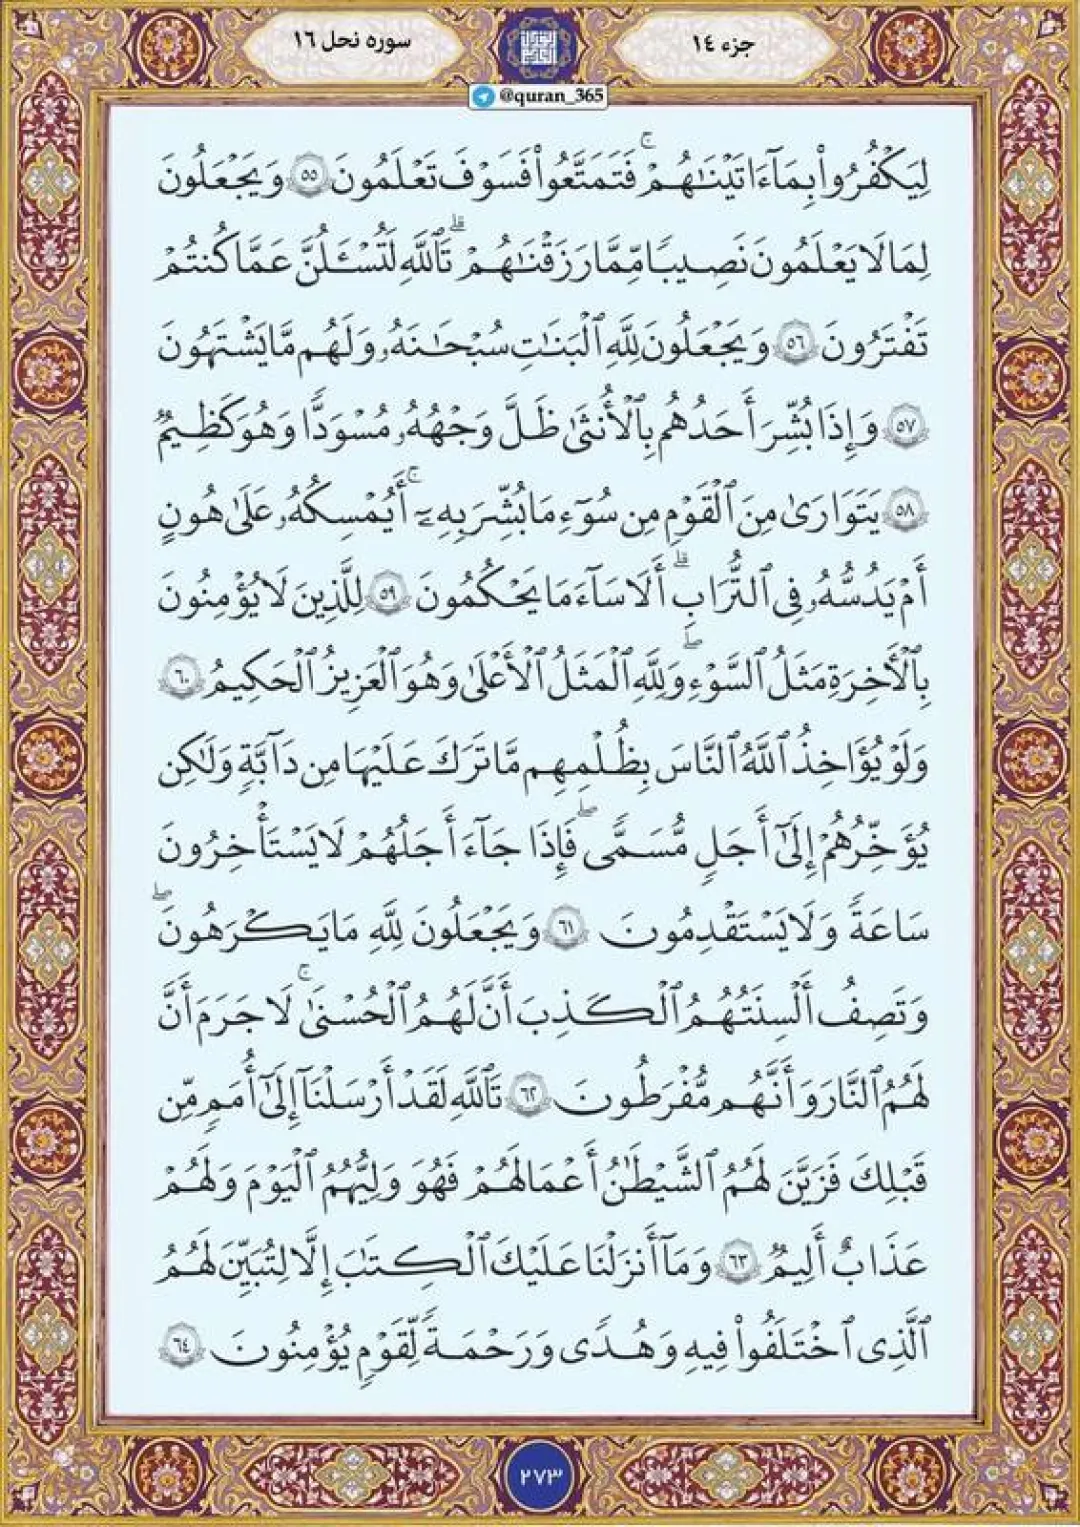 جزء ١٤
سوره نحل ١٦
@quran_365
لِيَكْفُرُوا۟ بِمَآ ءَاتَيْنَـٰهُمْ ۚ فَتَمَتَّعُوا۟ فَسَوْفَ تَعْلَمُونَ ٥٥ وَيَجْعَلُونَ
لِمَا لَا يَعْلَمُونَ نَصِيبًا مِّمَّا رَزَقْنَـٰهُمْ ۗ تَٱللَّهِ لَتُسْـَٔلُنَّ عَمَّا كُنتُمْ
تَفْتَرُونَ ٥٦ وَيَجْعَلُونَ لِلَّهِ ٱلْبَنَـٰتِ سُبْحَـٰنَهُۥ وَلَهُم مَّا يَشْتَهُونَ
٥٧ وَإِذَا بُشِّرَ أَحَدُهُم بِٱلْأُنثَىٰ ظَلَّ وَجْهُهُۥ مُسْوَدًّا وَهُوَ كَظِيمٌ
٥٨ يَتَوَٰرَىٰ مِنَ ٱلْقَوْمِ مِن سُوٓءِ مَا بُشِّرَ بِهِۦٓ ۚ أَيُمْسِكُهُۥ عَلَىٰ هُونٍ
أَمْ يَدُسُّهُۥ فِى ٱلتُّرَابِ ۗ أَلَا سَآءَ مَا يَحْكُمُونَ ٥٩ لِلَّذِينَ لَا يُؤْمِنُونَ
بِٱلْـَٔاخِرَةِ مَثَلُ ٱلسَّوْءِ ۖ وَلِلَّهِ ٱلْمَثَلُ ٱلْأَعْلَىٰ وَهُوَ ٱلْعَزِيزُ ٱلْحَكِيمُ ٦٠
وَلَوْ يُؤَاخِذُ ٱللَّهُ ٱلنَّاسَ بِظُلْمِهِم مَّا تَرَكَ عَلَيْهَا مِن دَآبَّةٍ وَلَـٰكِن
يُؤَخِّرُهُمْ إِلَىٰٓ أَجَلٍ مُّسَمًّى ۖ فَإِذَا جَآءَ أَجَلُهُمْ لَا يَسْتَـْٔخِرُونَ
سَاعَةً وَلَا يَسْتَقْدِمُونَ ٦١ وَيَجْعَلُونَ لِلَّهِ مَا يَكْرَهُونَ ۖ
وَتَصِفُ أَلْسِنَتُهُمُ ٱلْكَذِبَ أَنَّ لَهُمُ ٱلْحُسْنَىٰ ۚ لَا جَرَمَ أَنَّ
لَهُمُ ٱلنَّارَ وَأَنَّهُم مُّفْرَطُونَ ٦٢ تَٱللَّهِ لَقَدْ أَرْسَلْنَآ إِلَىٰٓ أُمَمٍ مِّن
قَبْلِكَ فَزَيَّنَ لَهُمُ ٱلشَّيْطَـٰنُ أَعْمَـٰلَهُمْ فَهُوَ وَلِيُّهُمُ ٱلْيَوْمَ وَلَهُمْ
عَذَابٌ أَلِيمٌ ٦٣ وَمَآ أَنزَلْنَا عَلَيْكَ ٱلْكِتَـٰبَ إِلَّا لِتُبَيِّنَ لَهُمُ
ٱلَّذِى ٱخْتَلَفُوا۟ فِيهِ وَهُدًى وَرَحْمَةً لِّقَوْمٍ يُؤْمِنُونَ ٦٤
٢٧٣